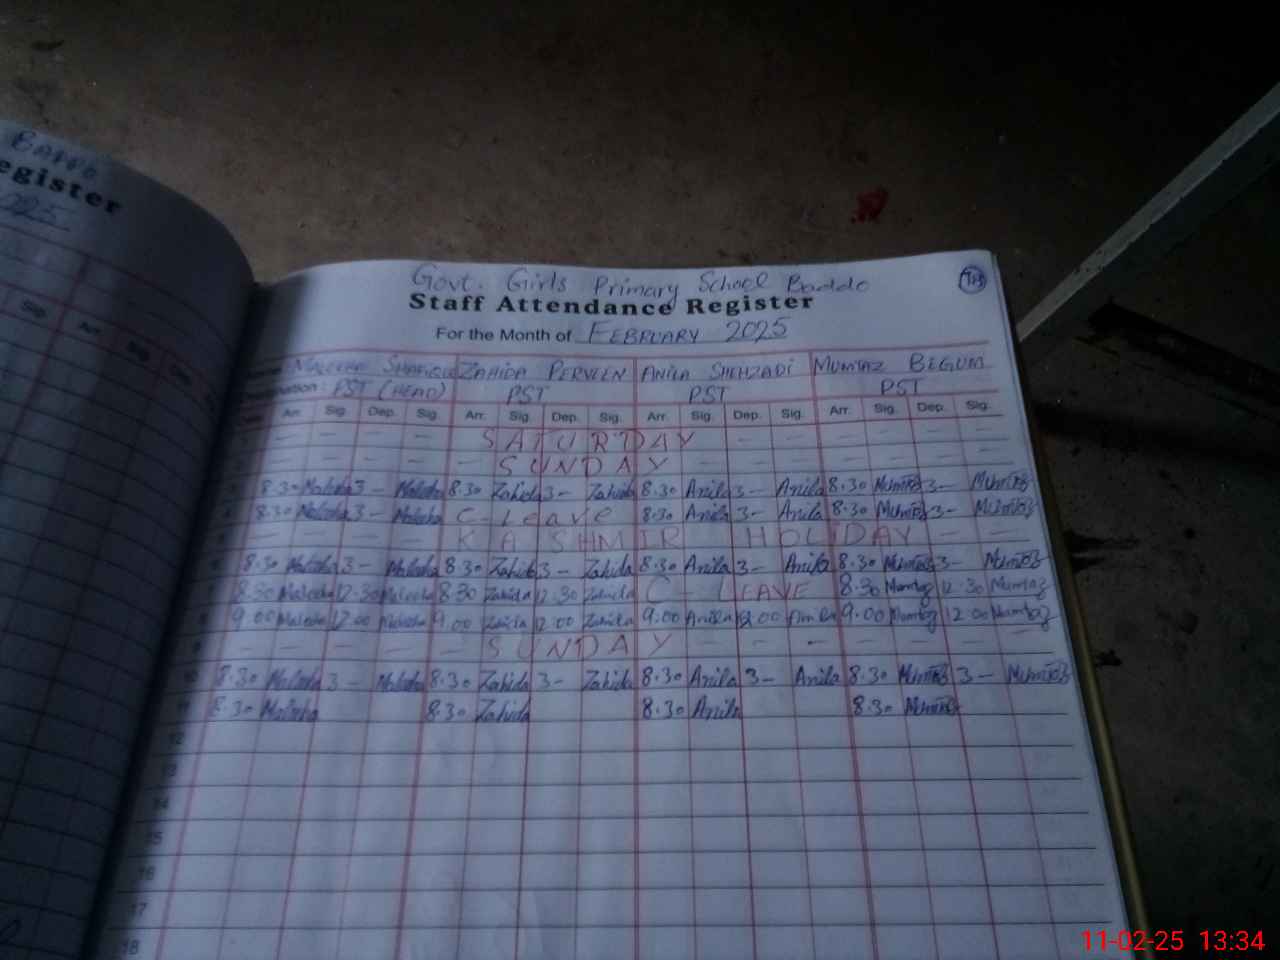 BADDO
egister
025
Sig.
Arr.
Sig.
Dep.
Govt. Girls Primary School Baddo
Staff Attendance Register
For the Month of FEBRUARY 2025
MALEEHA SHAFIQUE ZAHIDA PERVEEN ANILA SHEHZADI MUMTAZ BEGUM
nation: PST (HEAD) PST PST PST
Arr. Sig. Dep. Sig. Arr. Sig. Dep. Sig. Arr. Sig. Dep. Sig. Arr. Sig. Dep. Sig.
— — — — SATURDAY — — — — —
— — — — — SUNDAY — — — — — —
3 8.30 Maleeha 3— Maleeha 8.30 Zahida 3— Zahida 8.30 Anila 3— Anila 8.30 Mumtaz 3— Mumtaz
4 8.30 Maleeha 3— Maleeha C-Leave 8.30 Anila 3— Anila 8.30 Mumtaz 3— Mumtaz
— — — — KASHMIR HOLIDAY — — —
6 8.30 Maleeha 3— Maleeha 8.30 Zahida 3— Zahida 8.30 Anila 3— Anila 8.30 Mumtaz 3— Mumtaz
8.30 Maleeha 12.30 Maleeha 8.30 Zahida 12.30 Zahida C-LEAVE 8.30 Mumtaz 12.30 Mumtaz
9.00 Maleeha 12.00 Maleeha 9.00 Zahida 12.00 Zahida 9.00 Anila 12.00 Anila 9.00 Mumtaz 12.00 Mumtaz
9 — — — — — SUNDAY — — — — — — —
10 8.30 Maleeha 3— Maleeha 8.30 Zahida 3— Zahida 8.30 Anila 3— Anila 8.30 Mumtaz 3— Mumtaz
11 8.30 Maleeha 8.30 Zahida 8.30 Anila 8.30 Mumtaz
12
13
14
15
16
17
18
11-02-25 13:34